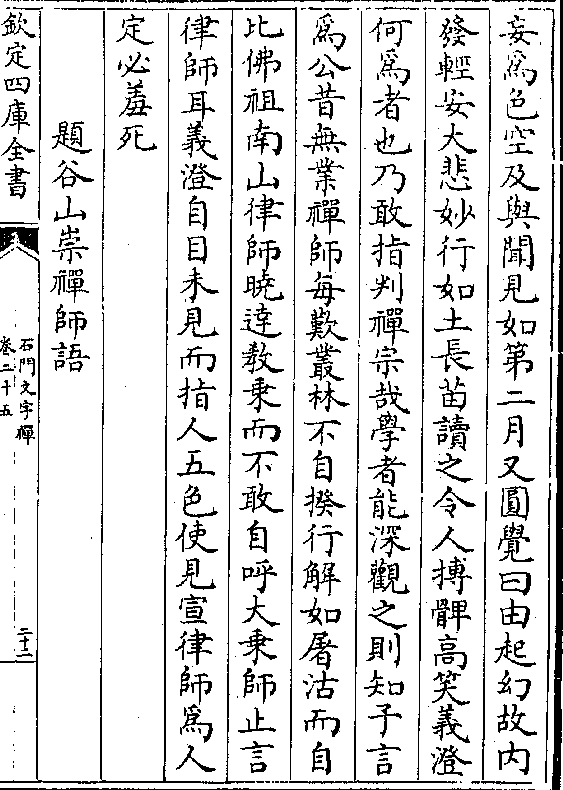 妄爲色空及與聞見如第二月又圓覺曰由起幻故内
發輕安大悲妙行如土長苗讀之令人摶髀高笑義澄
何爲者也乃敢指判禪宗哉學者能深觀之則知予言
爲公昔無業禪師每歎叢林不自揆行解如屠沽而自
比佛祖南山律師曉達教乗而不敢自呼大乗師止言
律師耳義澄自目未見而指人五色使見宣律師爲人
定必羞死
題谷山崇禪師語
欽定四庫全書
石門文字禪
卷二十五
二十二